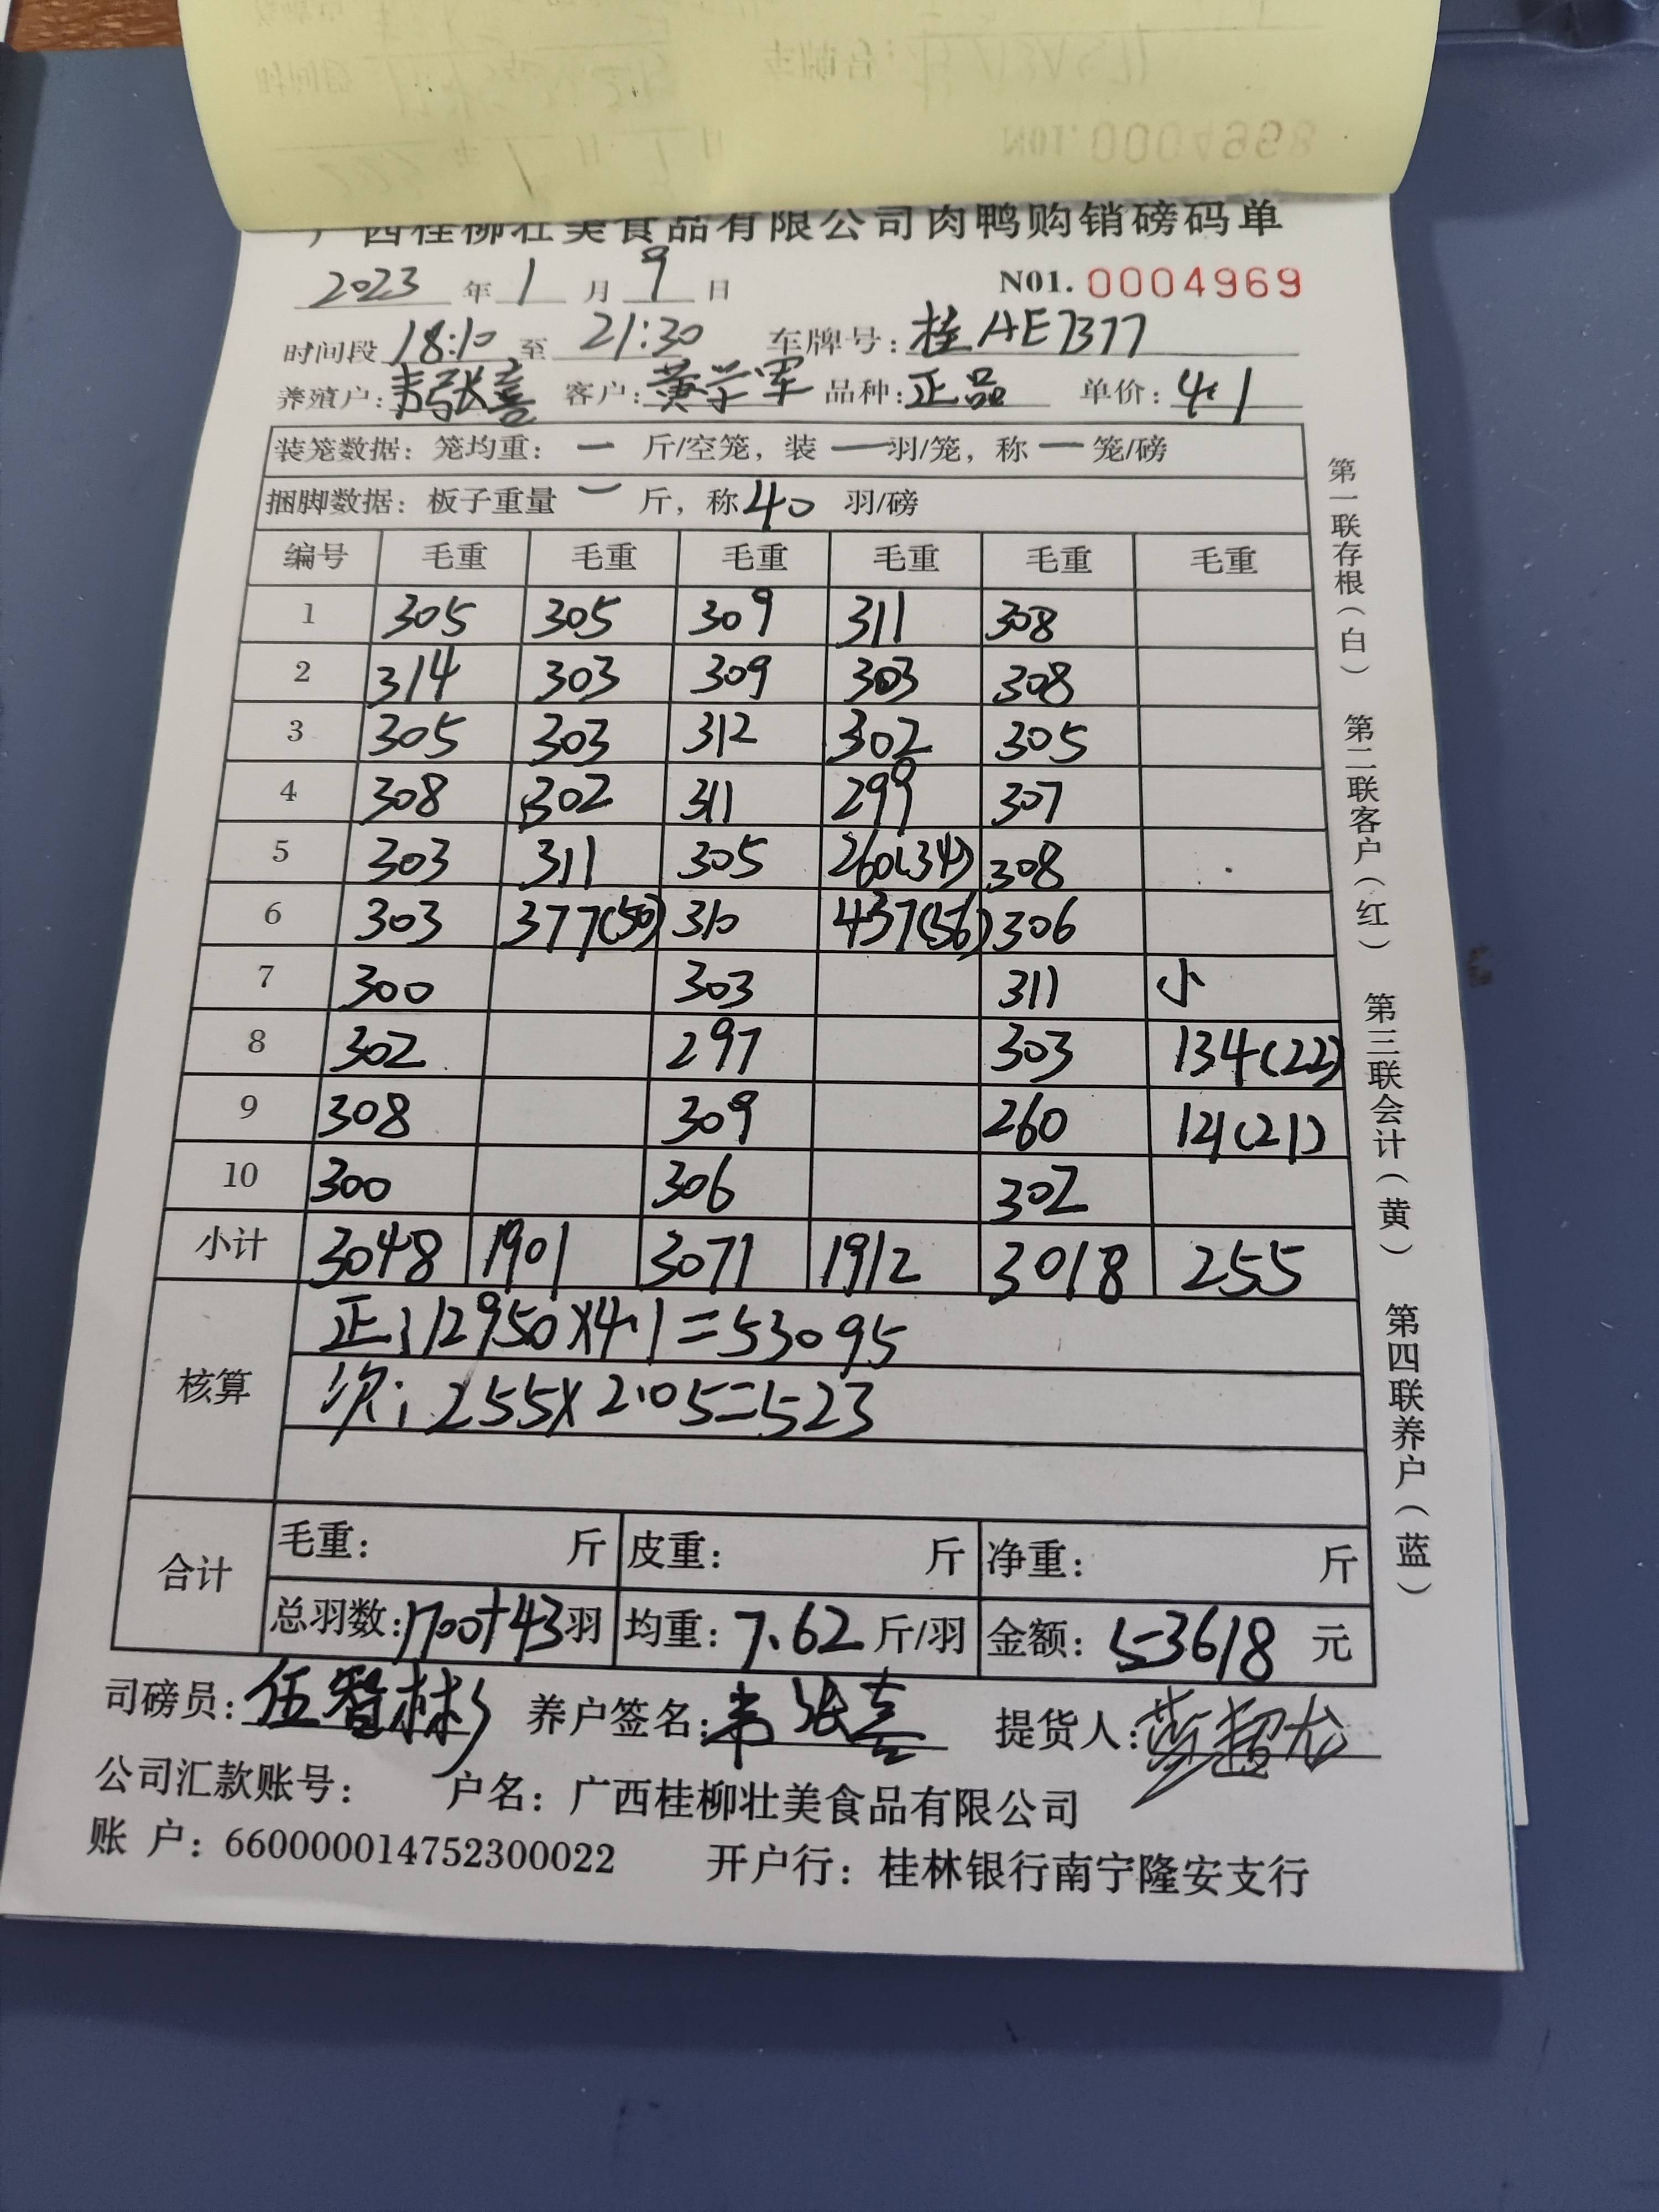 广西桂柳壮美食品有限公司肉鸭购销磅码单
2023 年 1 月 9 日 N01. 0004969
时间段 18:10 至 21:30 车牌号: 桂AE7377
养殖户: 韦张喜 客户: 黄学军 品种: 正品 单价: 4.1
装笼数据: 笼均重: 一 斤/空笼, 装 一 羽/笼, 称 一 笼/磅
捆脚数据: 板子重量 一 斤, 称 40 羽/磅
编号 毛重 毛重 毛重 毛重 毛重 毛重
1 305 305 309 311 308
2 314 303 309 303 308
3 305 303 312 302 305
4 308 302 311 299 307
5 303 311 305 260(34) 308
6 303 377(50) 310 437(56) 306
7 300 303 311 小
8 302 297 303 134(22)
9 308 309 260 121(21)
10 300 306 302
小计 3048 1901 3071 1912 3018 255
核算
正: 12950×4.1=53095
次: 255×2.05=523
合计
毛重: 斤 皮重: 斤 净重: 斤
总羽数: 1700+43 羽 均重: 7.62 斤/羽 金额: 53618 元
司磅员: 伍智彬 养户签名: 韦张喜 提货人:
公司汇款账号: 户名: 广西桂柳壮美食品有限公司
账 户: 660000014752300022 开户行: 桂林银行南宁隆安支行
第一联存根(白) 第二联客户(红) 第三联会计(黄) 第四联养户(蓝)